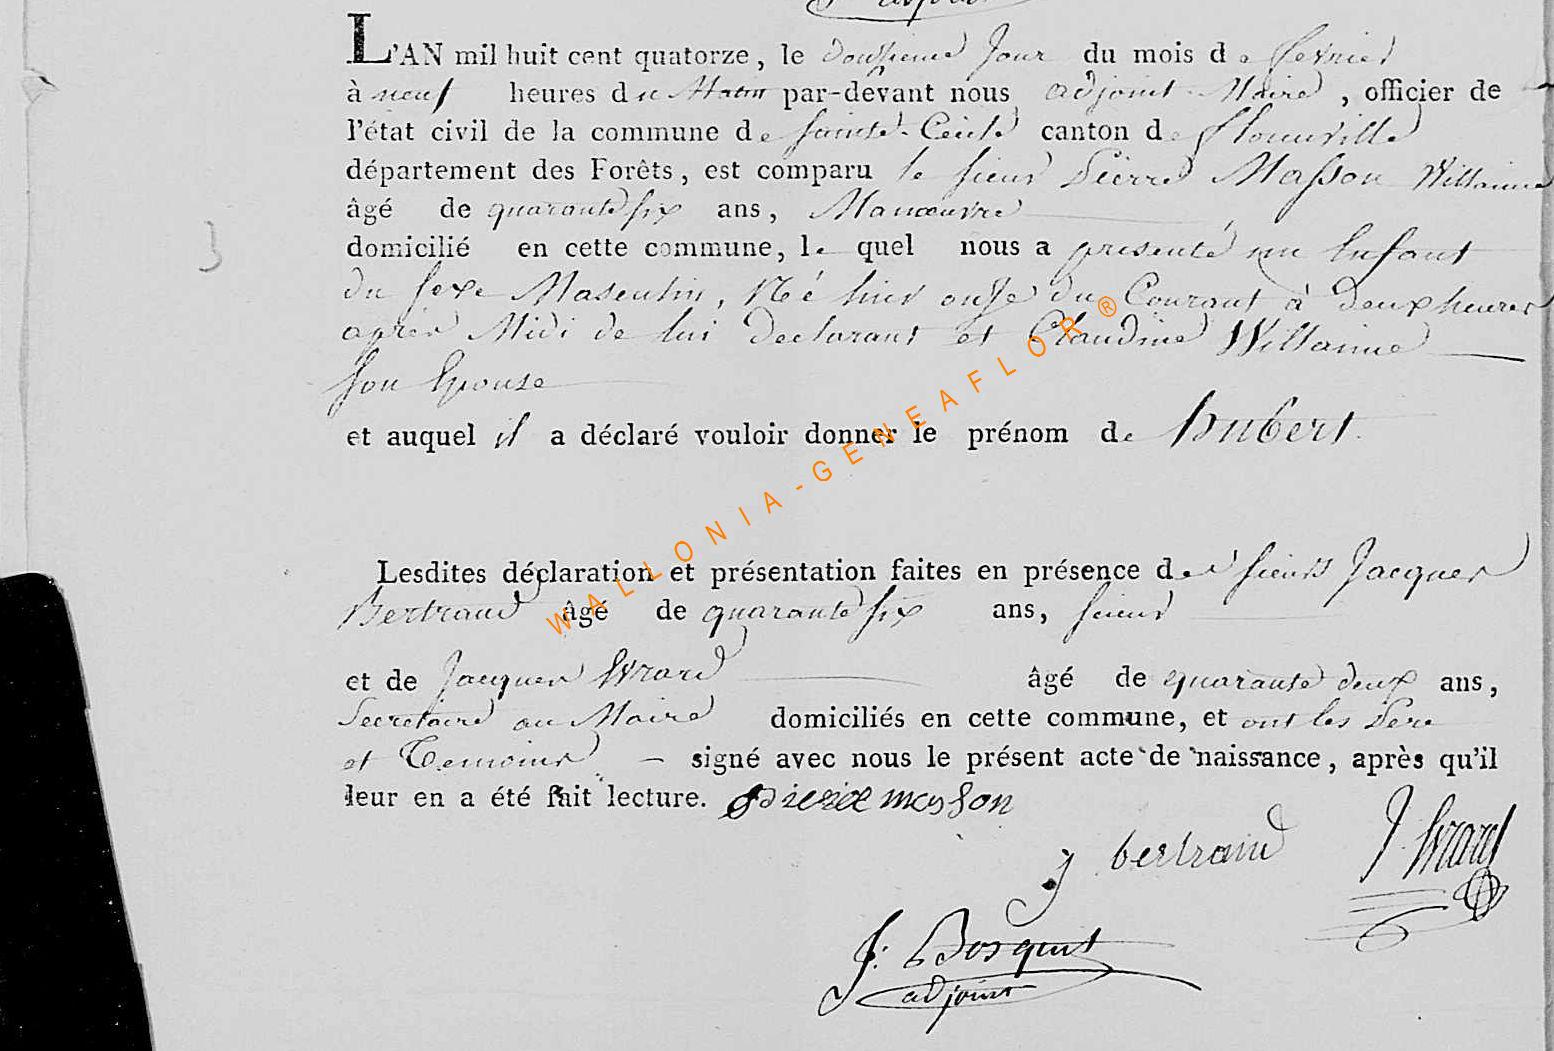 adjoint
L'AN mil huit cent quatorze, le douzieme Jour du mois de fevrier
à neuf heures du Matin par-devant nous adjoint Maire, officier de
l'état civil de la commune de Sainte-Cecile canton de florenville
département des Forêts, est comparu le sieur Pierre Masson Willaime
âgé de quarante six ans, Manœuvre
domicilié en cette commune, le quel nous a presenté un Enfant
du sexe Masculin, Né hier onze du Courant à deux heures
après Midi de lui declarant et Claudine Willaime
son Epouse
et auquel il a déclaré vouloir donner le prénom de hubert.
Lesdites déclaration et présentation faites en présence des sieurs Jacques
Bertrand âgé de quarante six ans,
et de Jacques Evrard âgé de quarante deux ans,
Secretaire au Maire domiciliés en cette commune, et ont les Pere
et Temoins – signé avec nous le présent acte de naissance, après qu'il
leur en a été fait lecture. pierre masson
j bertrand J. Evrard
J: Bosquet
adjoint
3
WALLONIA-GENEAFLOR®